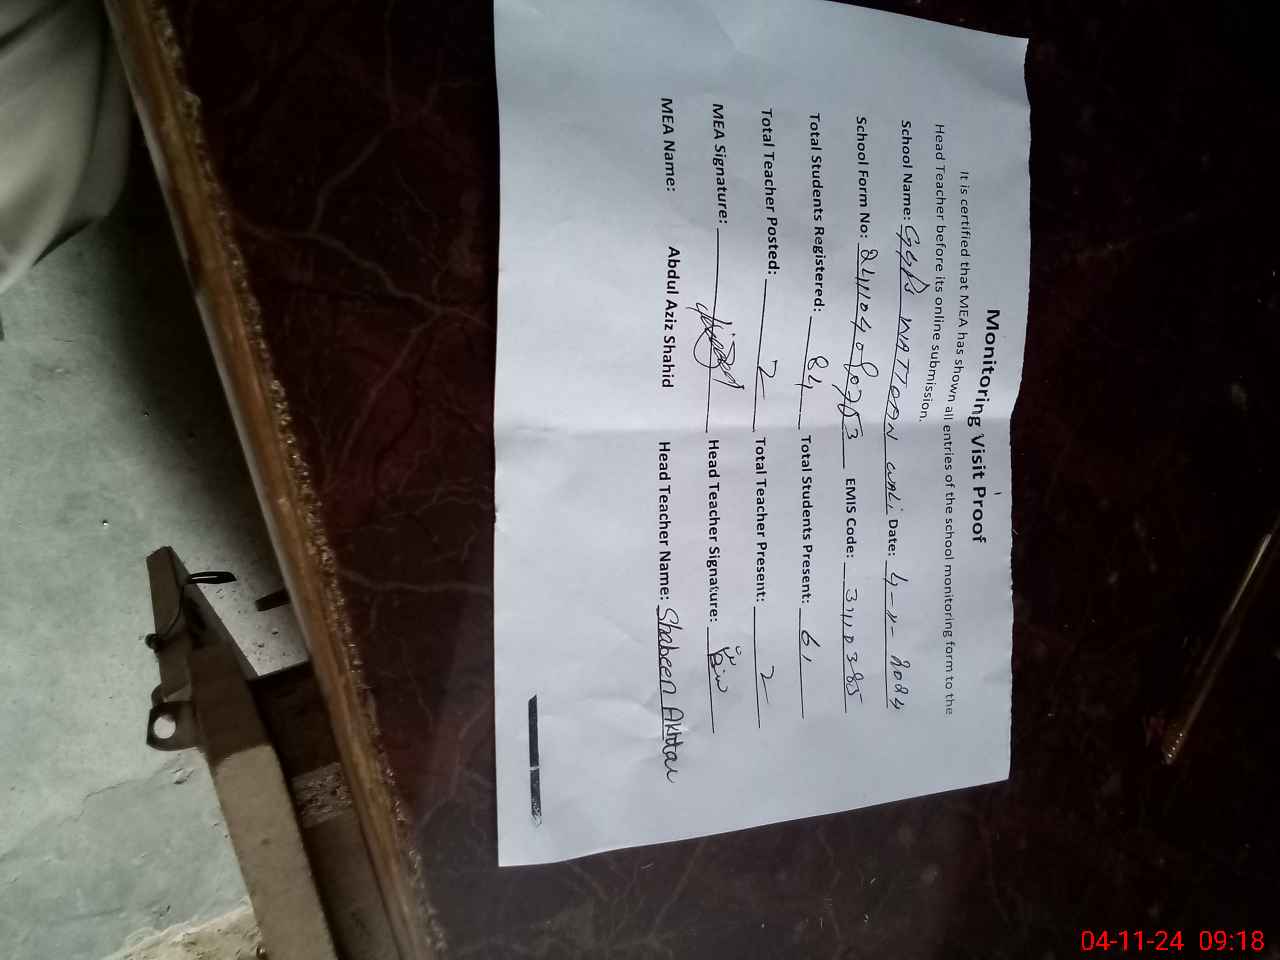 Monitoring Visit Proof
It is certified that MEA has shown all entries of the school monitoring form to the
Head Teacher before its online submission.
School Name: GGPS WATTOAN WALI Date: 4-11-2024
School Form No: EMIS Code:
Total Students Registered: 84 Total Students Present: 61
Total Teacher Posted: 2 Total Teacher Present: 2
MEA Signature: Head Teacher Signature:
MEA Name: Abdul Aziz Shahid Head Teacher Name: Shabeen Akhtar
04-11-24 09:18